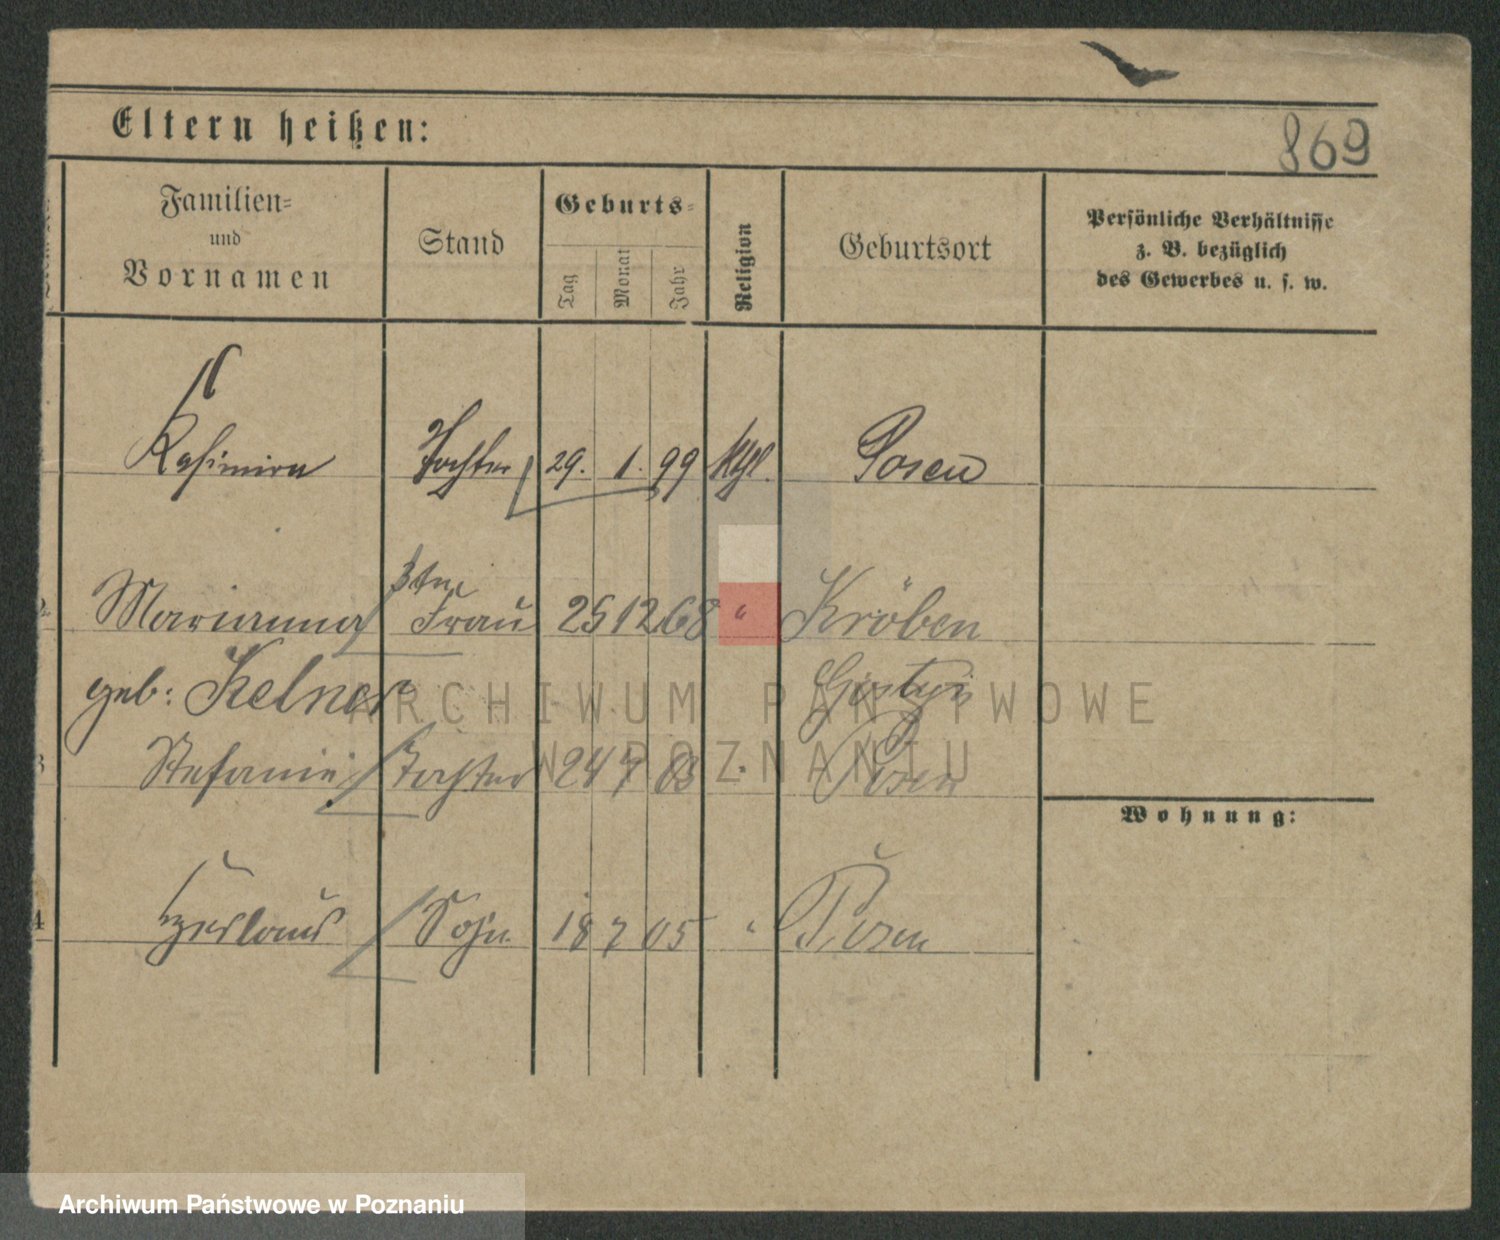 Eltern heißen:
869
Familien=
und
Vornamen
Stand
Geburts=
Tag
Monat
Jahr
Religion
Geburtsort
Persönliche Verhältnisse
z. B. bezüglich
des Gewerbes u. s. w.
Kasimira Tochter 29. 1. 99 kth. Posen
2 Marianna Frau 25 12 68 " Kröben
geb: Kelner Gostyń
3 Stefanie Tochter 24 7 03 " Posen
Wohnung:
4 Czeslaus Sohn 18 7 05 " Posen
ARCHIWUM PAŃSTWOWE
W POZNANIU
Archiwum Państwowe w Poznaniu